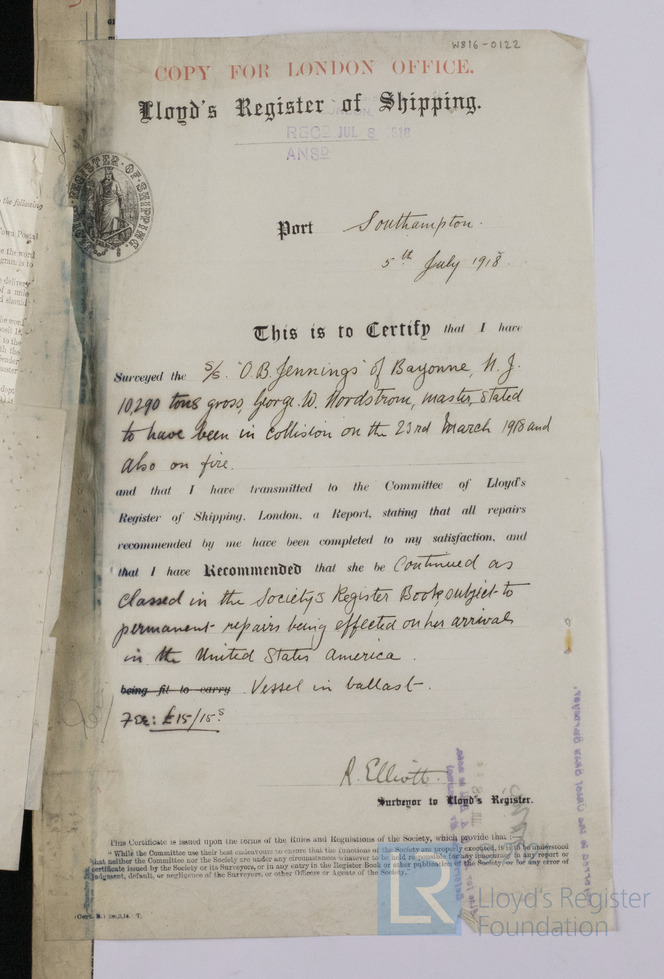 W816-0122
COPY FOR LONDON OFFICE.
Lloyd's Register of Shipping.
LONDON
REC'D JUL 8 1918
ANSD
LLOYD'S REGISTER OF SHIPPING.
Port Southampton.
5th July 1918.
This is to Certify that I have
Surveyed the S/S. "O.B. Jennings" of Bayonne, N.J.
10290 tons gross, George W. Nordstrom, master, stated
to have been in collision on the 23rd March 1918 and
also on fire.
and that I have transmitted to the Committee of Lloyd's
Register of Shipping, London, a Report, stating that all repairs
recommended by me have been completed to my satisfaction, and
that I have Recommended that she be Continued as
classed in the Society's Register Book, subject to
permanent repairs being effected on her arrival
in the United States America.
being fit to carry Vessel in ballast.
Fee: £15/15s
R. Elliott.
Surveyor to Lloyd's Register.
This Certificate is issued upon the terms of the Rules and Regulations of the Society, which provide that
"While the Committee use their best endeavours to ensure that the functions of the Society are properly executed, it is to be understood
that neither the Committee nor the Society are under any circumstances whatever to be held responsible for any inaccuracy in any report or
certificate issued by the Society or its Surveyors, or in any entry in the Register Book or other publication of the Society, or for any error of
judgment, default, or negligence of the Surveyors, or other Officers or Agents of the Society."
LR Lloyd's Register
Foundation
the following
Town Postal
the word
delivery
of a mile
should
the word
to the